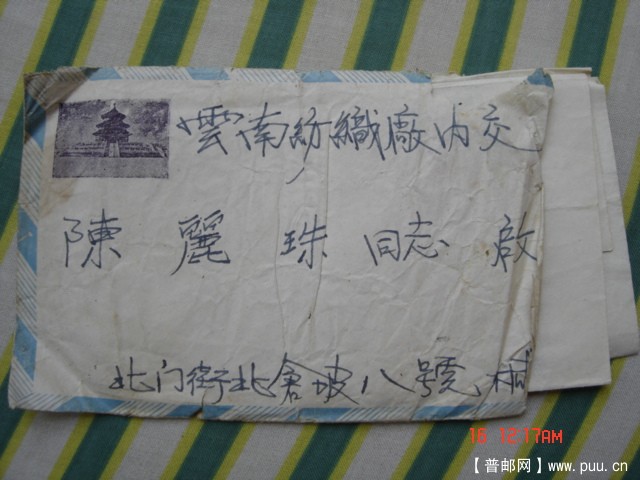 雲南紡織廠内交
陳麗珠同志啟
北门街北倉坡八號
16 12:17AM
【普邮网】www.puu.cn